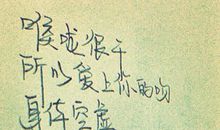 喉咙很干
所以爱上你的吻
身体空虚